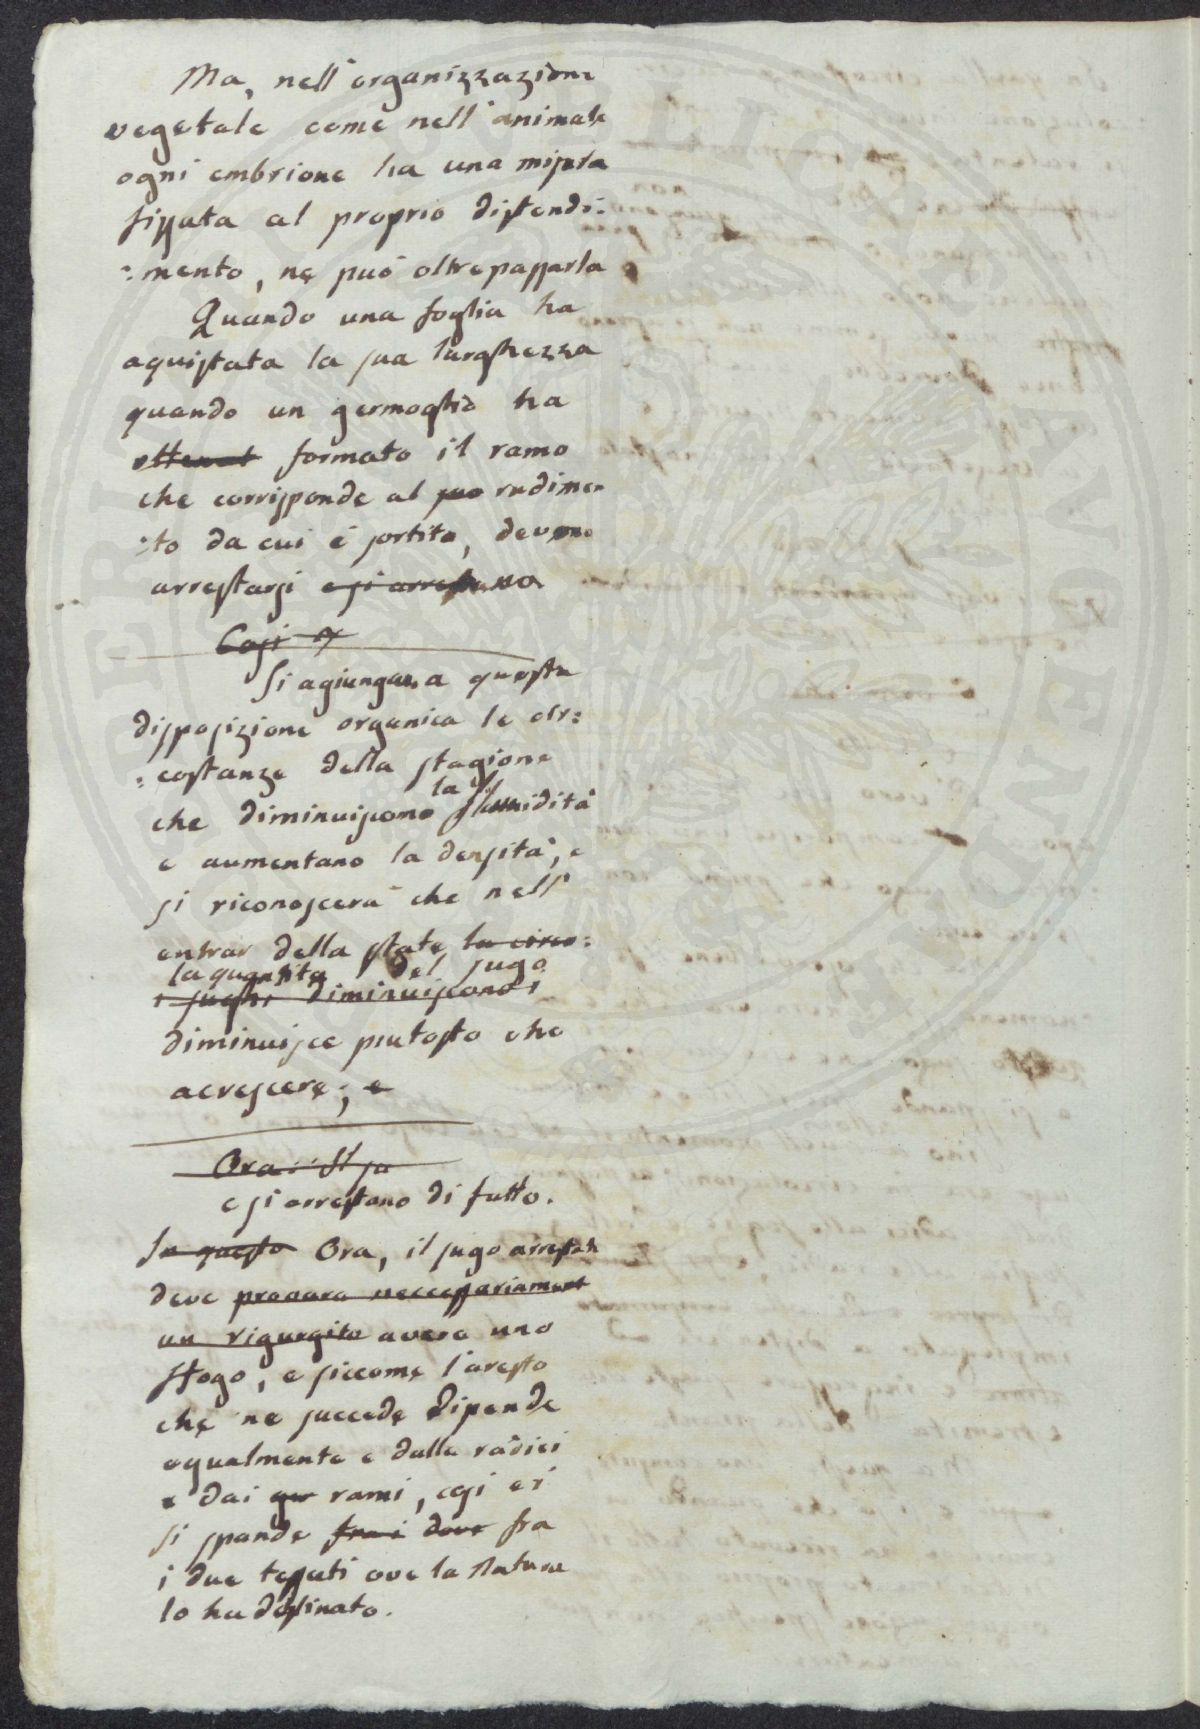 Ma, nell'organizzazione
vegetale come nell'animale
ogni embrione ha una misura
fissata al proprio distendi:
:mento, ne può oltrepassarla
Quando una foglia ha
aquistata la sua larghezza
quando un germoglio ha
ottenut formato il ramo
che corrisponde al suo rudimen
:to da cui é sortito, devono
arrestarsi e si arrestano
Cosi
Si agiungan a questa
disposizione organica le cir:
:costanze della stagione
che diminuiscono la umidità
e aumentano la densità, e
si riconoscerà che nell'
entrar della state la circo:
la quantita del sugo
i sughi diminuiscono
diminuisce piutosto che
acrescere; e
Ora Il su
e si arrestano di tutto.
In questo Ora, il sugo arrestato
deve necessariament
un rigurgito avere uno
sfogo, e siccome l'aresto
che ne succede dipende
egualmente e dalle radici
e dai ger rami, cosi ei
si spande fra i dove fra
i due tessuti ove la Natura
lo ha destinato.